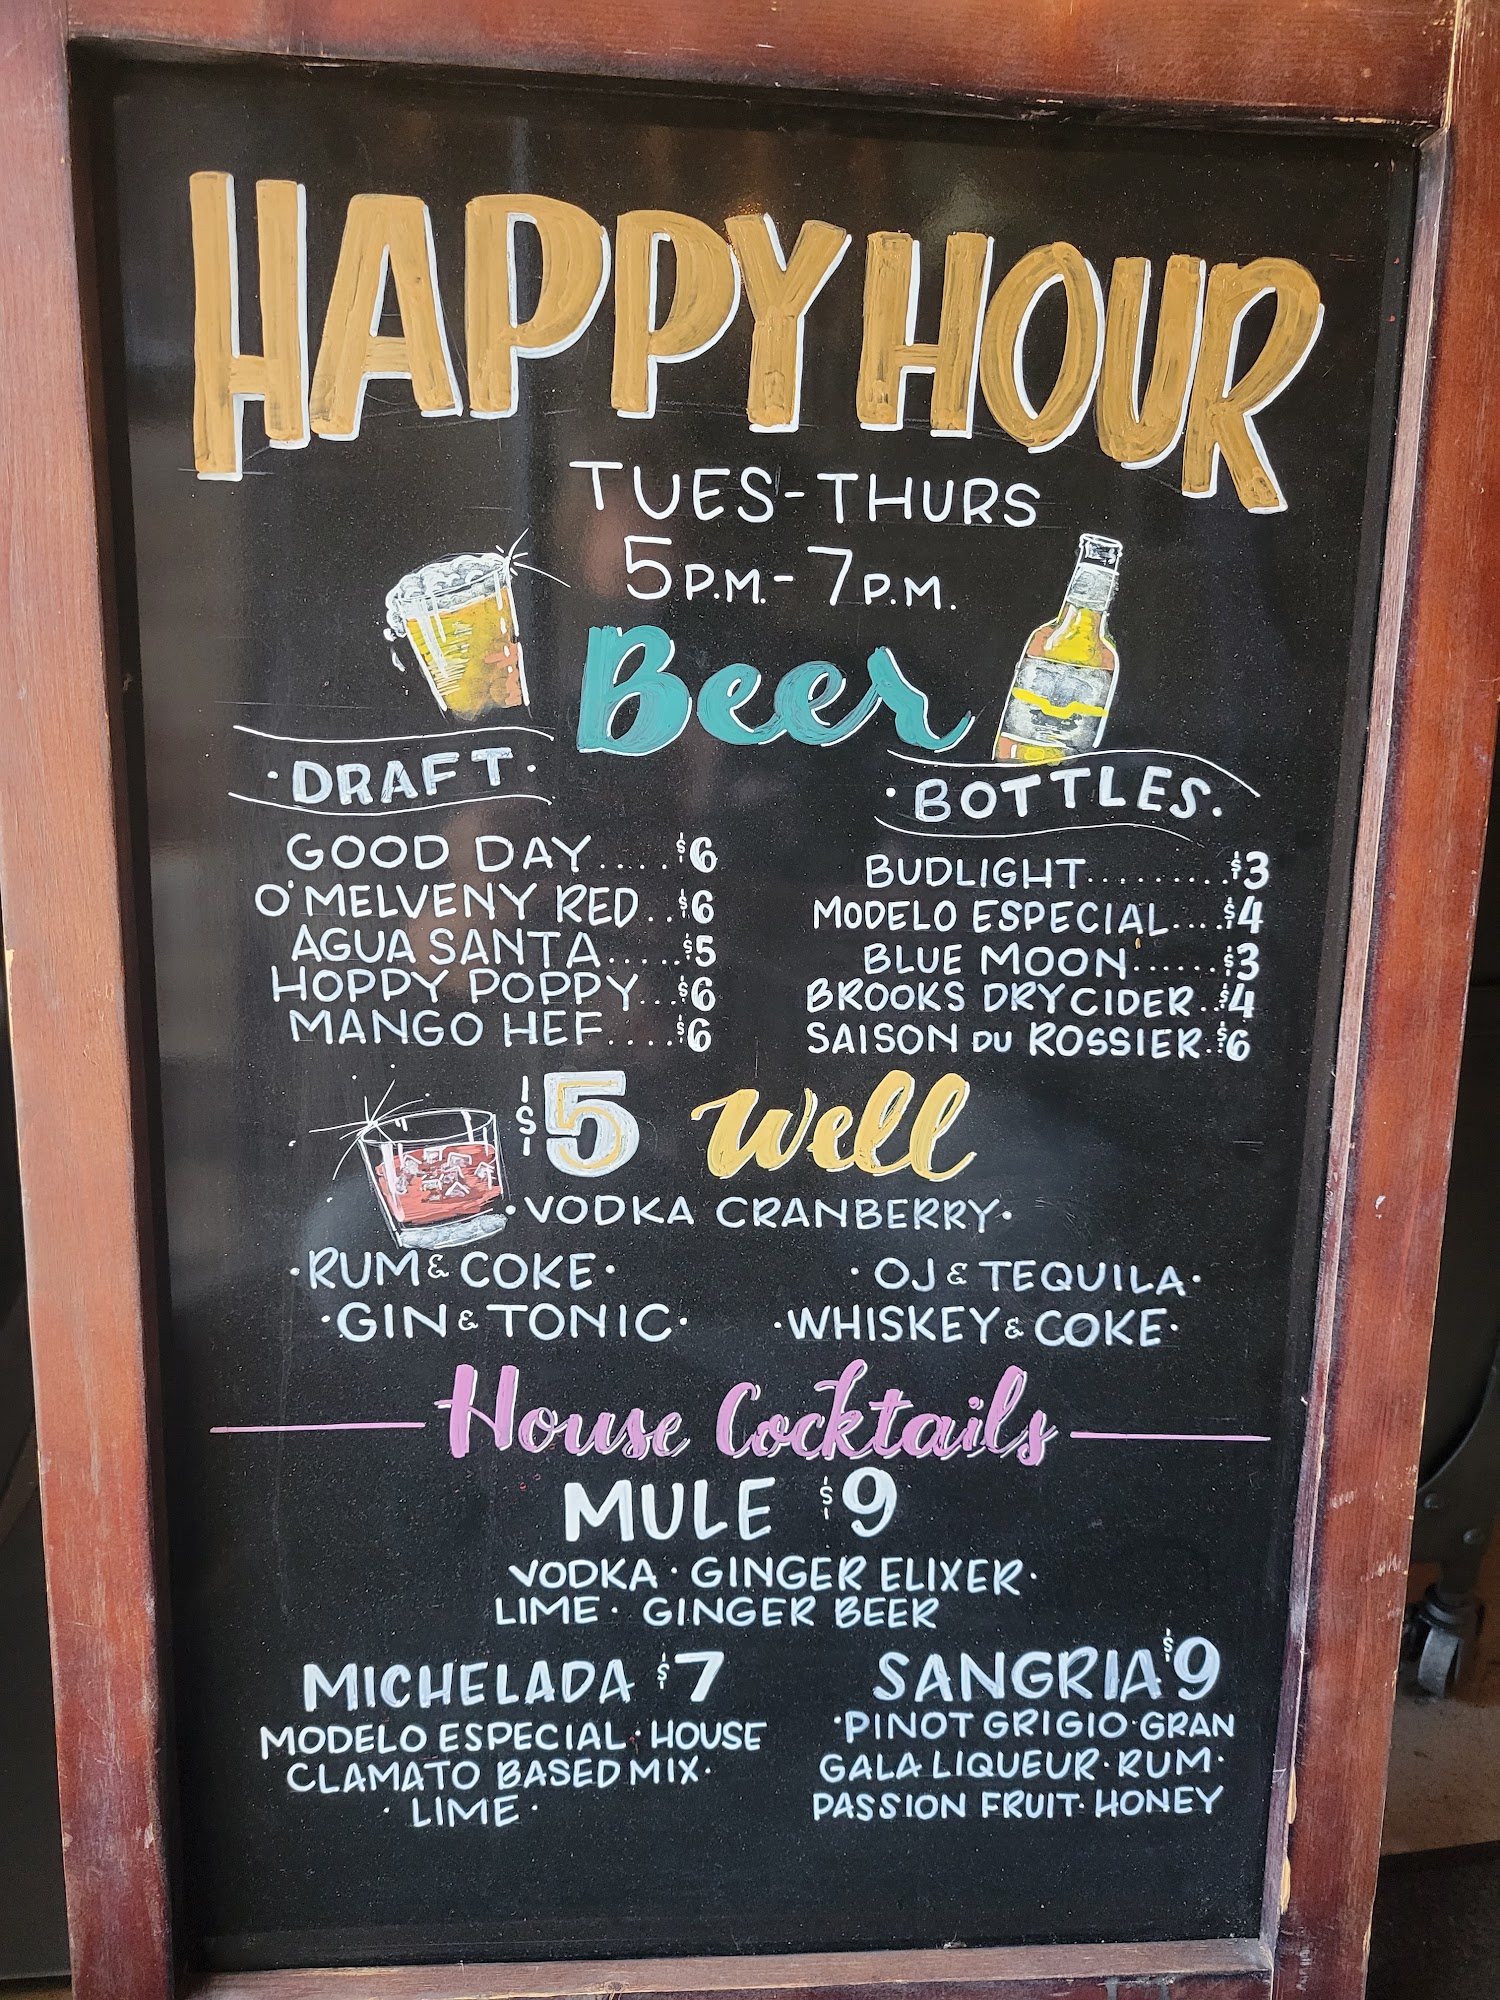 HAPPY HOUR
TUES-THURS
5P.M.-7P.M.
Beer
·DRAFT·
GOOD DAY....$6
O'MELVENY RED..$6
AGUA SANTA.....$5
HOPPY POPPY...$6
MANGO HEF....$6
·BOTTLES.
BUDLIGHT.........$3
MODELO ESPECIAL....$4
BLUE MOON......$3
BROOKS DRY CIDER..$4
SAISON DU ROSSIER.$6
$5 Well
·VODKA CRANBERRY·
·RUM & COKE·
·OJ & TEQUILA·
·GIN & TONIC·
·WHISKEY & COKE·
House Cocktails
MULE $9
VODKA · GINGER ELIXER ·
LIME · GINGER BEER
MICHELADA $7
MODELO ESPECIAL · HOUSE
CLAMATO BASED MIX·
· LIME ·
SANGRIA $9
·PINOT GRIGIO·GRAN
GALA LIQUEUR·RUM·
PASSION FRUIT·HONEY